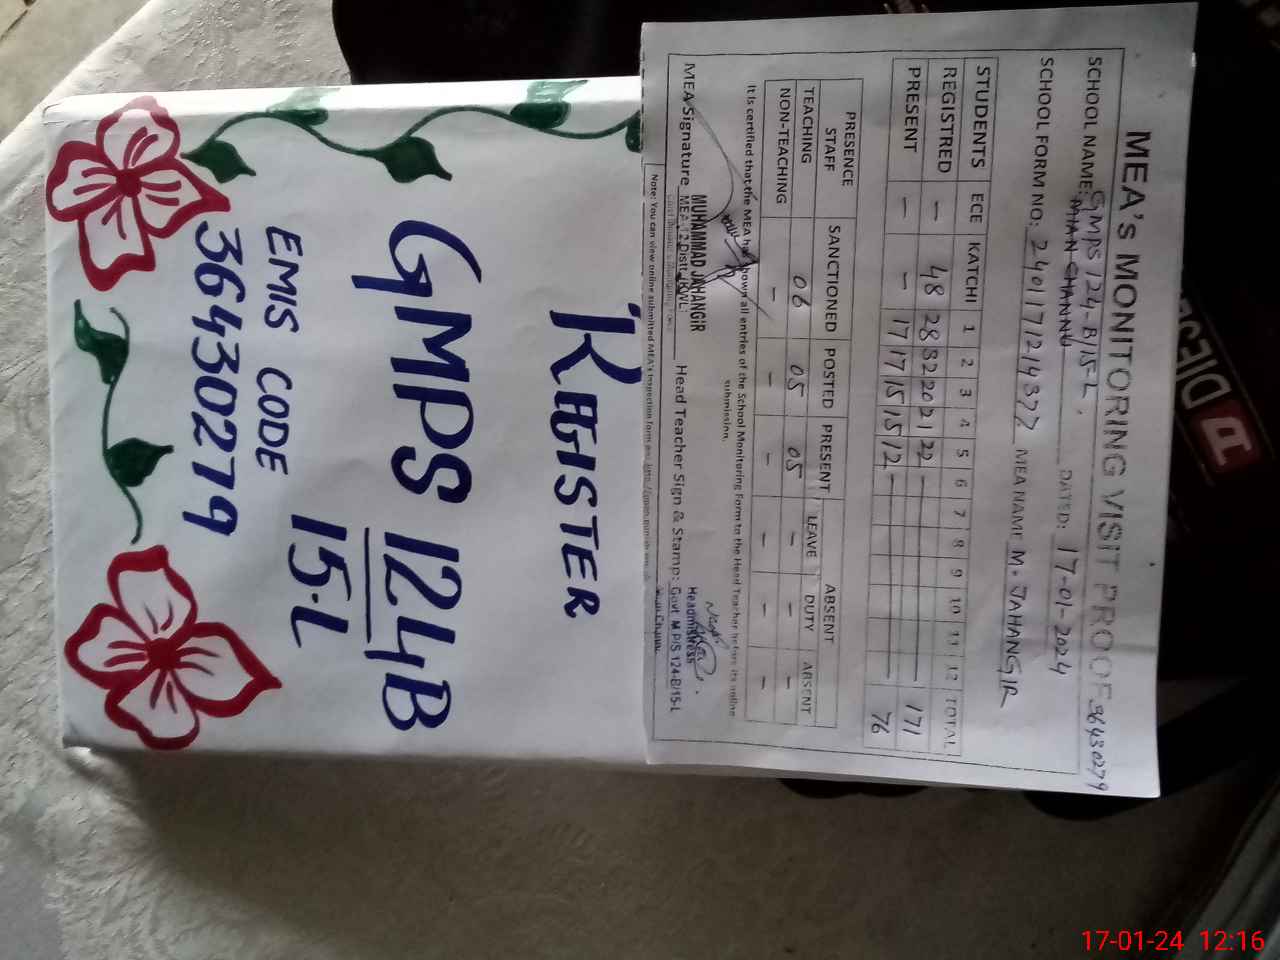 MEA'S MONITORING VISIT PROOF
SCHOOL NAME: GMPS 124-B/15-L, 36430279
MIAN CHANNU DATED: 17-01-2024
SCHOOL FORM NO: MEA NAME M. JAHANGIR
STUDENTS ECE KATCHI 1 2 3 4 5 6 7 8 9 10 11 12 TOTAL
REGISTRED — 48 28 32 20 21 22 — 171
PRESENT — — 17 17 15 15 12 — 76
PRESENCE STAFF SANCTIONED POSTED PRESENT ABSENT
LEAVE DUTY ABSENT
TEACHING 06 05 05 — — —
NON-TEACHING — — — — — —
It is certified that the MEA has shown all entries of the School Monitoring Form to the Head Teacher before its online
submission.
MEA Signature Head Teacher Sign & Stamp:
MUHAMMAD JAHANGIR
MEA-12 Distt. KWL
Headmistress
Govt. M.P/S 124-B/15-L
Mian Channu
Note: You can view online submitted MEA's inspection form
REGISTER
GMPS 124B
15-L
EMIS CODE
36430279
DESE
17-01-24 12:16